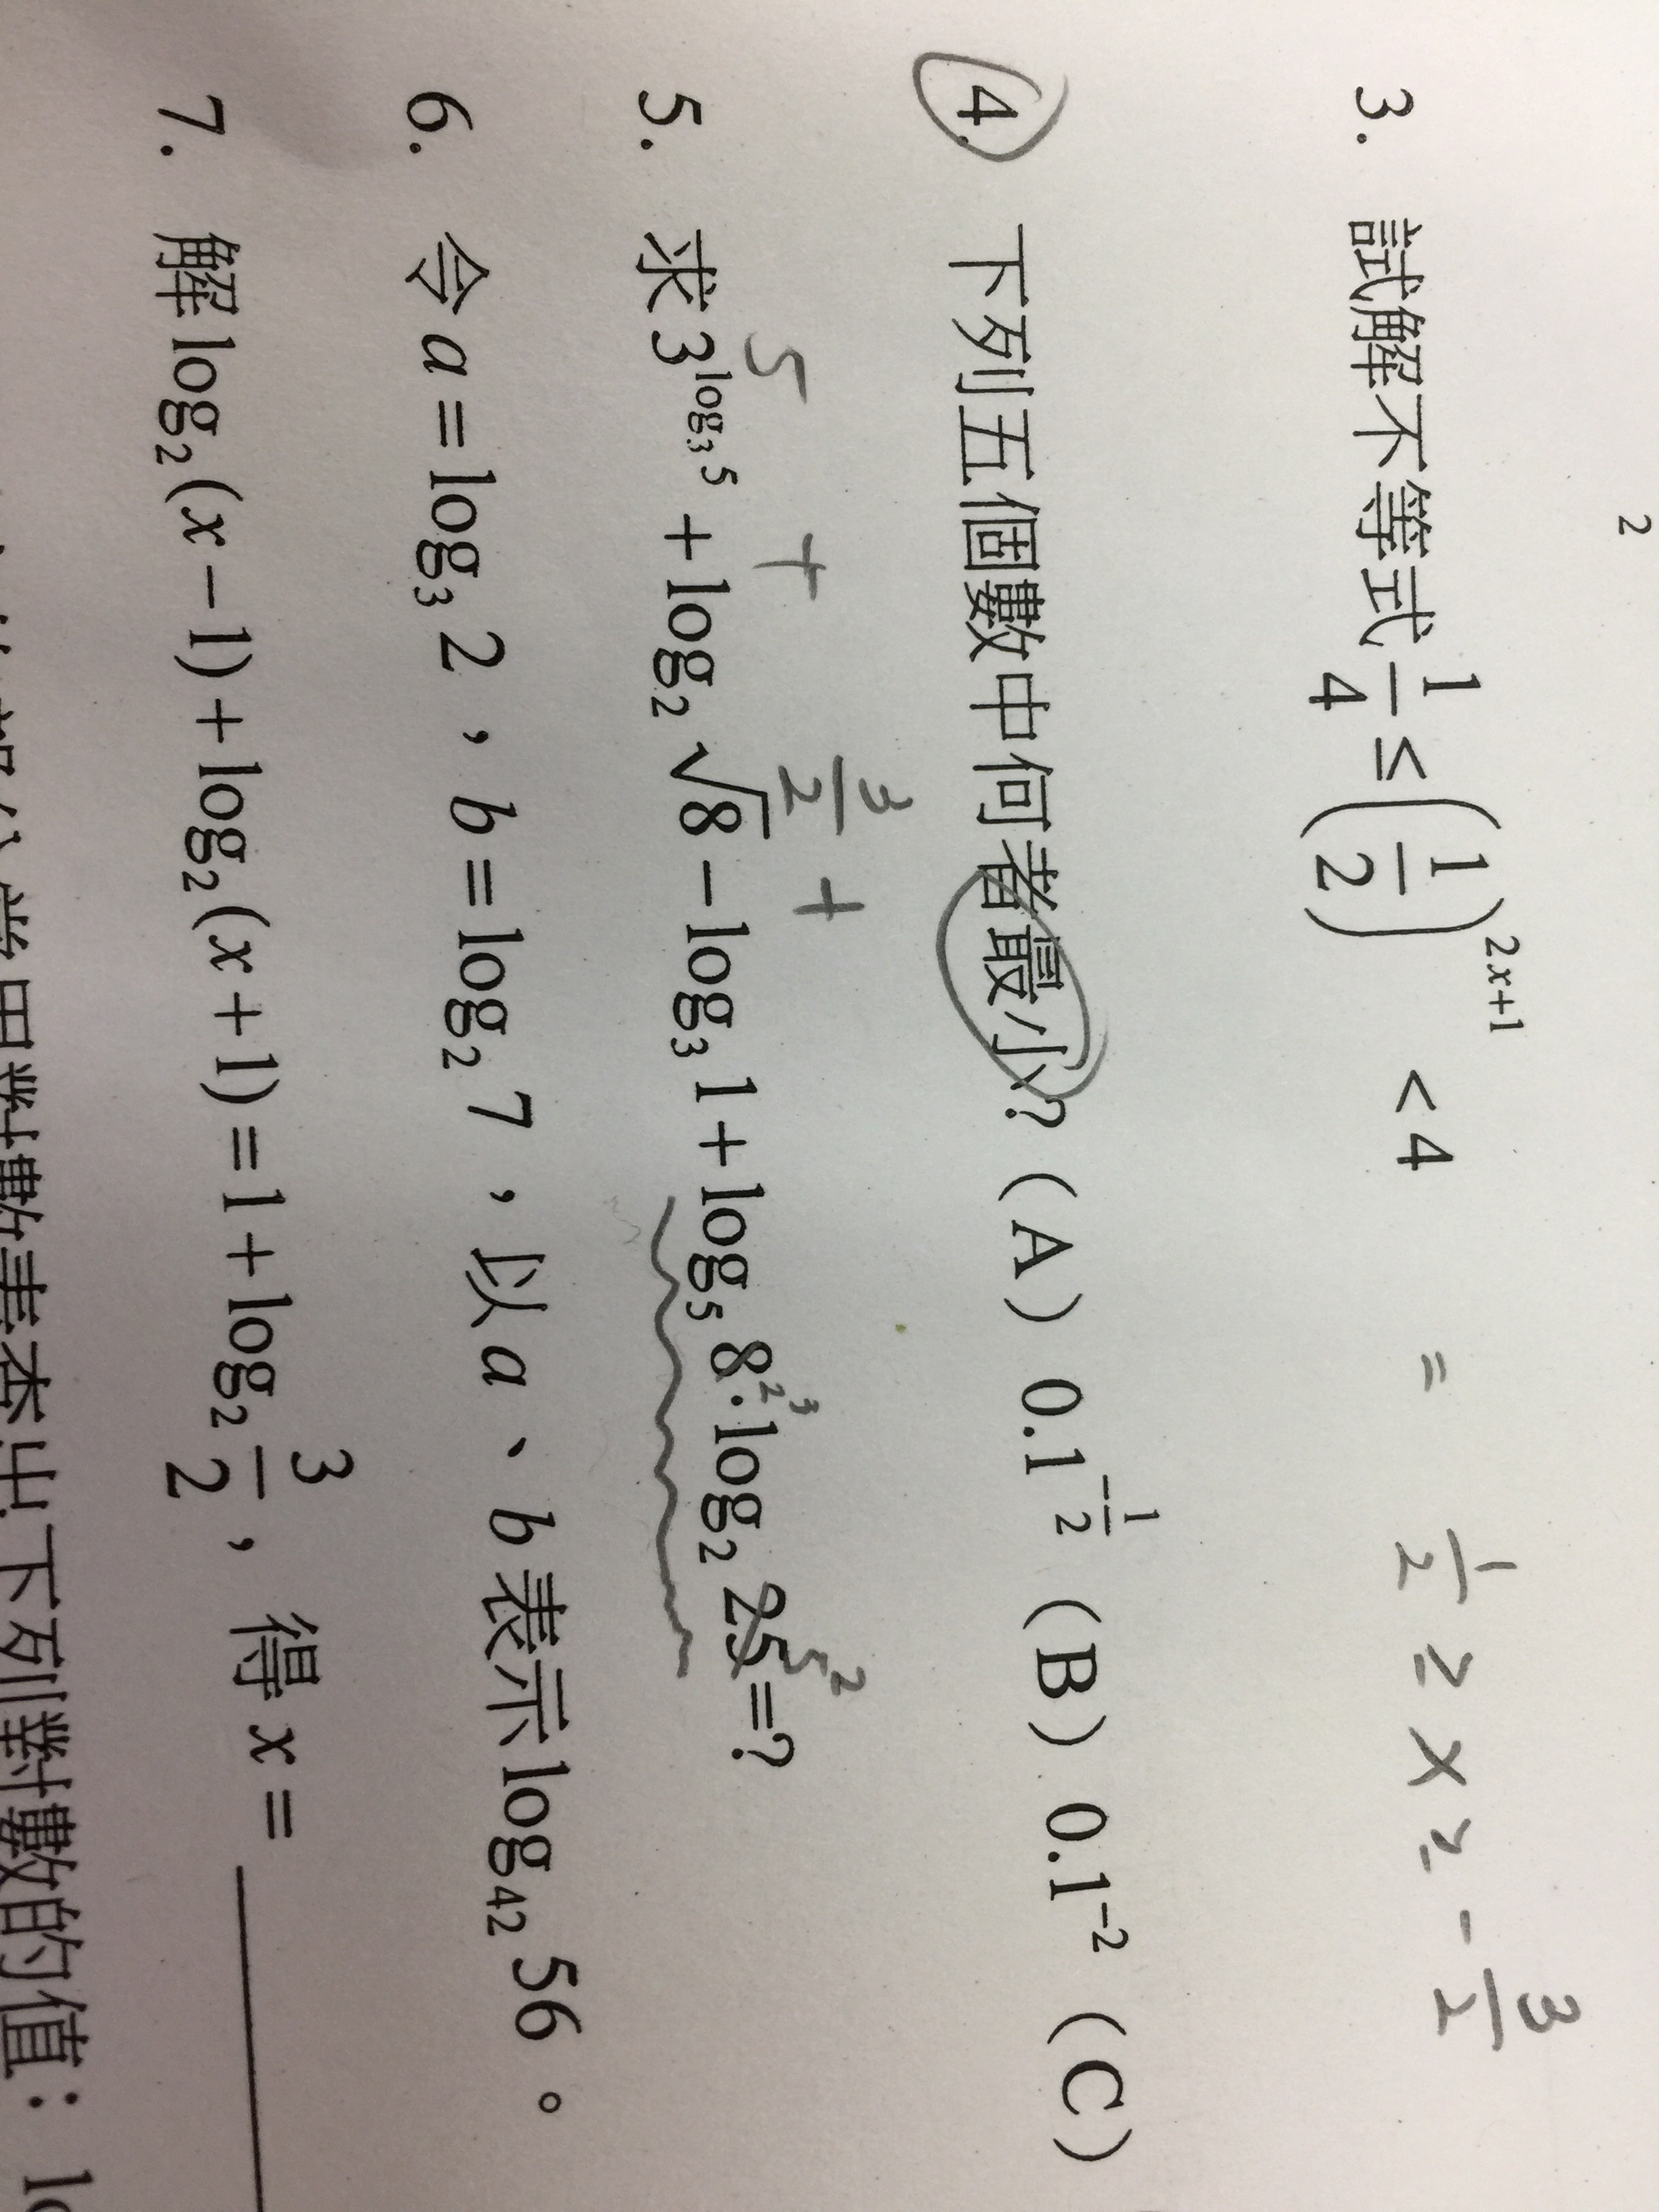 2
3. 試解不等式 1/4 ≤ (1/2)^{2x+1} < 4 = 1/2 ≥ x ≥ -3/2
4. 下列五個數中何者最小?(A)0.1^{-1/2}(B)0.1^{-2}(C)
5 + 3/2 +
5. 求3^{log₃5} + log₂√8 − log₃1 + log₅8 2³ · log₂25 5² =?
6. 令a = log₃2,b = log₂7,以a、b表示log₄₂56。
7. 解log₂(x−1) + log₂(x+1) = 1 + log₂ 3/2,得x = ______
用對數表查出下列對數的值:lo